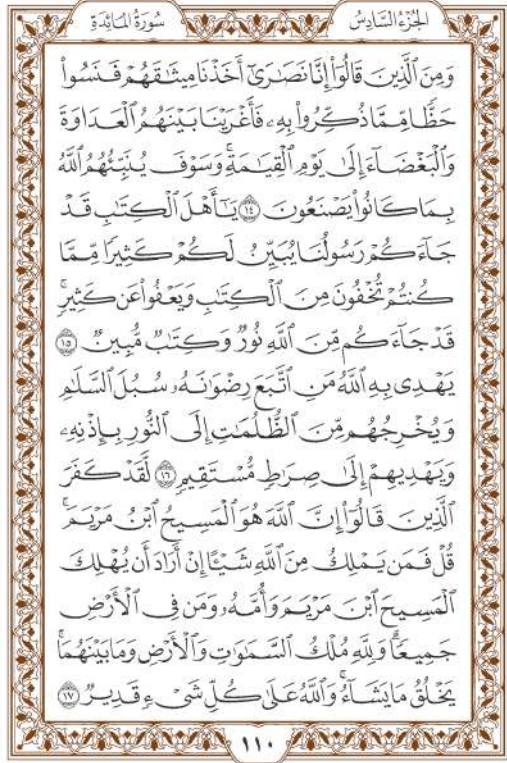 الجزء السادس سورة المائدة
وَمِنَ ٱلَّذِينَ قَالُوٓا۟ إِنَّا نَصَـٰرَىٰٓ أَخَذْنَا مِيثَـٰقَهُمْ فَنَسُوا۟
حَظًّا مِّمَّا ذُكِّرُوا۟ بِهِۦ فَأَغْرَيْنَا بَيْنَهُمُ ٱلْعَدَاوَةَ
وَٱلْبَغْضَآءَ إِلَىٰ يَوْمِ ٱلْقِيَـٰمَةِ ۚ وَسَوْفَ يُنَبِّئُهُمُ ٱللَّهُ
بِمَا كَانُوا۟ يَصْنَعُونَ ١٤ يَـٰٓأَهْلَ ٱلْكِتَـٰبِ قَدْ
جَآءَكُمْ رَسُولُنَا يُبَيِّنُ لَكُمْ كَثِيرًا مِّمَّا
كُنتُمْ تُخْفُونَ مِنَ ٱلْكِتَـٰبِ وَيَعْفُوا۟ عَن كَثِيرٍ ۚ
قَدْ جَآءَكُم مِّنَ ٱللَّهِ نُورٌ وَكِتَـٰبٌ مُّبِينٌ ١٥
يَهْدِى بِهِ ٱللَّهُ مَنِ ٱتَّبَعَ رِضْوَٰنَهُۥ سُبُلَ ٱلسَّلَـٰمِ
وَيُخْرِجُهُم مِّنَ ٱلظُّلُمَـٰتِ إِلَى ٱلنُّورِ بِإِذْنِهِۦ
وَيَهْدِيهِمْ إِلَىٰ صِرَٰطٍ مُّسْتَقِيمٍ ١٦ لَّقَدْ كَفَرَ
ٱلَّذِينَ قَالُوٓا۟ إِنَّ ٱللَّهَ هُوَ ٱلْمَسِيحُ ٱبْنُ مَرْيَمَ ۚ
قُلْ فَمَن يَمْلِكُ مِنَ ٱللَّهِ شَيْـًٔا إِنْ أَرَادَ أَن يُهْلِكَ
ٱلْمَسِيحَ ٱبْنَ مَرْيَمَ وَأُمَّهُۥ وَمَن فِى ٱلْأَرْضِ
جَمِيعًا ۗ وَلِلَّهِ مُلْكُ ٱلسَّمَـٰوَٰتِ وَٱلْأَرْضِ وَمَا بَيْنَهُمَا ۚ
يَخْلُقُ مَا يَشَآءُ ۚ وَٱللَّهُ عَلَىٰ كُلِّ شَىْءٍ قَدِيرٌ ١٧
١١٠